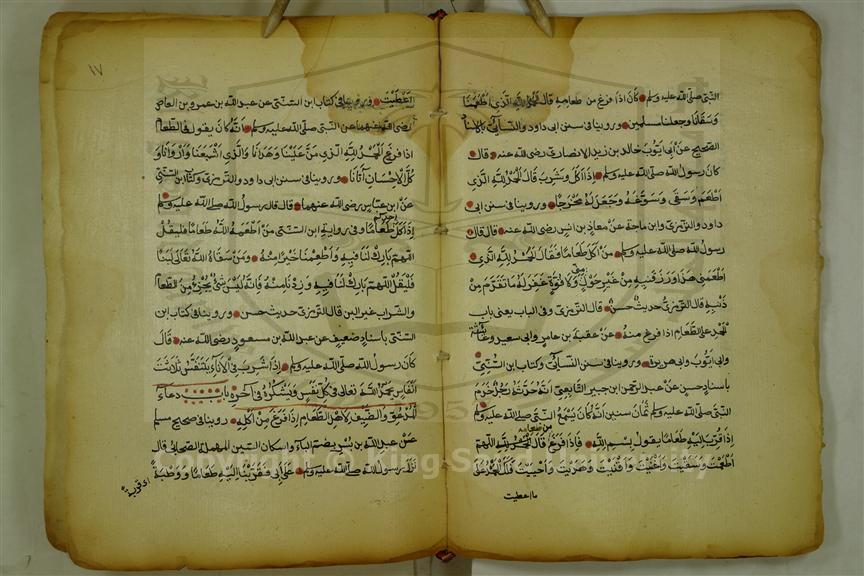 النبي صلى الله عليه وسلم كان اذا فرغ من طعامه قال الحمد لله الذي اطعمنا
وسقانا وجعلنا مسلمين وروينا في سنن ابي داود والنسائي بالاسناد
الصحيح عن ابي ايوب خالد بن زيد الانصاري رضي الله عنه قال
كان رسول الله صلى الله عليه وسلم اذا اكل وشرب قال الحمد لله الذي
اطعم وسقى وسوغه وجعل له مخرجا وروينا في سنن ابي
داود والترمذي وابن ماجة عن معاذ بن انس رضي الله عنه قال قال
رسول الله صلى الله عليه وسلم من اكل طعاما فقال الحمد لله الذي
اطعمني هذا ورزقنيه من غير حول مني ولا قوة غفر له ما تقدم من
ذنبه قال الترمذي حديث حسن قال الترمذي وفي الباب يعني باب
الحمد على الطعام اذا فرغ منه عن عقبة بن عامر وابي سعيد وعائشة
وابي ايوب وابي هريرة وروينا في سنن النسائي وكتاب ابن السني
باسناد حسن عن عبد الرحمن ابن جبير التابعي انه حدثه رجل خدم
النبي صلى الله عليه وسلم ثمان سنين انه كان يسمع النبي صلى الله عليه وسلم
اذا قرب اليه طعاما يقول بسم الله فاذا فرغ من طعامه قال اللهم
اطعمت وسقيت واغنيت واقنيت وهديت واحييت فلك الحمد على
ما اعطيت
١٧
اعطيت وروينا في كتاب ابن السني عن عبد الله بن عمرو بن العاص
رضي الله عنهما عن النبي صلى الله عليه وسلم انه كان يقول في الطعام
اذا فرغ الحمد لله الذي من علينا وهدانا والذي اشبعنا واروانا و
كل الاحسان آتانا وروينا في سنن ابي داود والترمذي وكتاب ابن السني
عن ابن عباس رضي الله عنهما قال قال رسول الله صلى الله عليه وسلم
اذا اكل احدكم طعاما وفي رواية ابن السني من اطعمه الله طعاما فليقل
اللهم بارك لنا فيه واطعمنا خيرا منه ومن سقاه الله تعالى لبنا
فليقل اللهم بارك لنا فيه وزدنا منه فانه ليس شئ يجزئ من الطعام
والشراب غير اللبن قال الترمذي حديث حسن وروينا في كتاب ابن
السني باسناد ضعيف عن عبد الله بن مسعود رضي الله عنه قال
كان رسول الله صلى الله عليه وسلم اذا شرب في الاناء يتنفس ثلاثة
انفاس يحمد الله تعالى في كل نفس ويشكره في آخره باب دعاء
المدعو والضيف لاهل الطعام اذا فرغ من اكله روينا في صحيح مسلم
عن عبد الله بن بسر بضم الباء واسكان السين المهملة الصحابي قال
نزل رسول الله صلى الله عليه وسلم على ابي فقربنا اليه طعاما ووطبة
Copyright © King Saud University